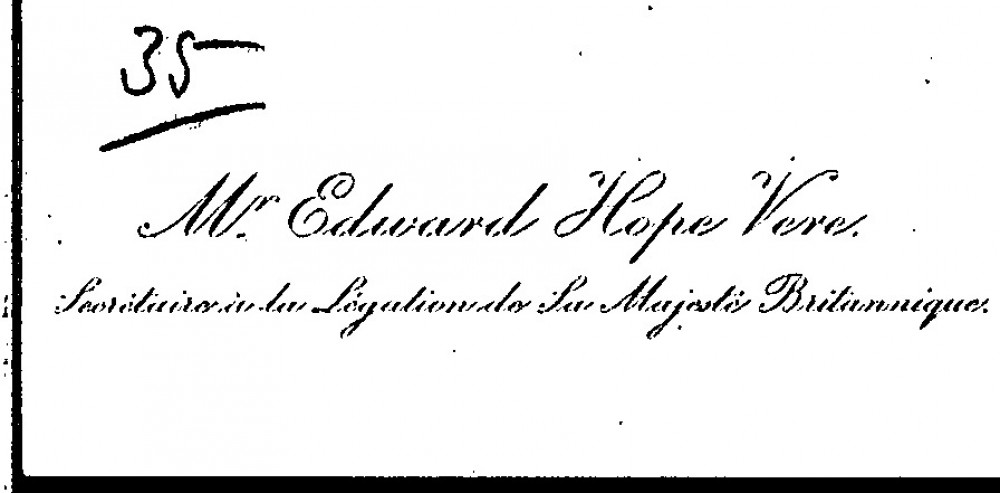 35
Mr. Edward Hope Vere.
Secrétaire à la Légation de Sa Majesté Britannique.